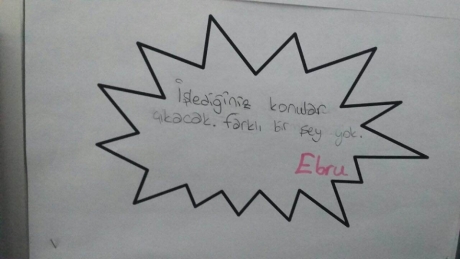 İşlediğiniz konular
çıkacak. farklı bir şey yok.
Ebru